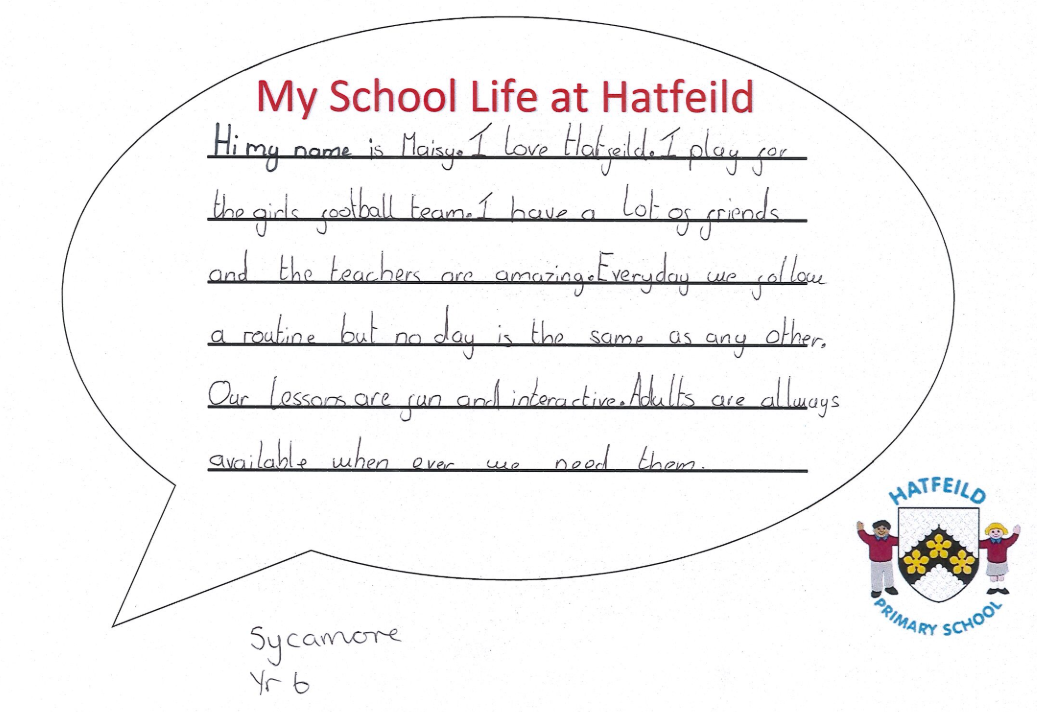 My School Life at Hatfeild
Hi my name is Maisy. I love Hatfeild. I play for
the girls football team. I have a lot of friends
and the teachers are amazing. Everyday we follow
a routine but no day is the same as any other.
Our lessons are fun and interactive. Adults are allways
available when ever we need them.
HATFEILD
PRIMARY SCHOOL
Sycamore
Yr 6